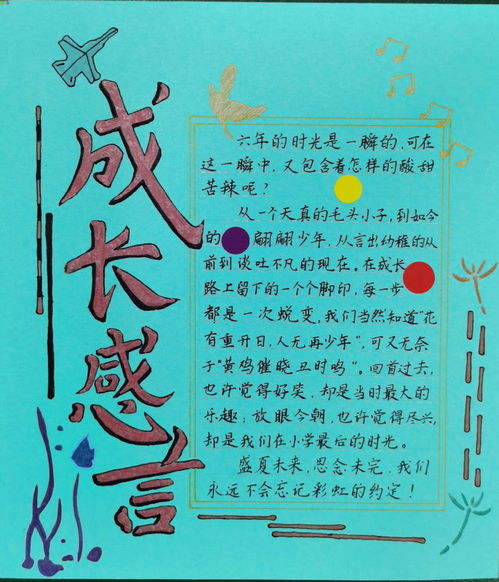 成长感言
六年的时光是一瞬的,可在
这一瞬中,又包含着怎样的酸甜
苦辣呢?
从一个天真的毛头小子,到如今
的翩翩少年,从言出幼稚的从
前到谈吐不凡的现在。在成长
路上留下的一个个脚印,每一步
都是一次蜕变,我们当然知道"花
有重开日,人无再少年",可又无奈
于"黄鸡催晓丑时鸣"。回首过去,
也许觉得好笑,却是当时最大的
乐趣;放眼今朝,也许觉得尽兴,
却是我们在小学最后的时光。
盛夏未来,思念未完,我们
永远不会忘记彩虹的约定!